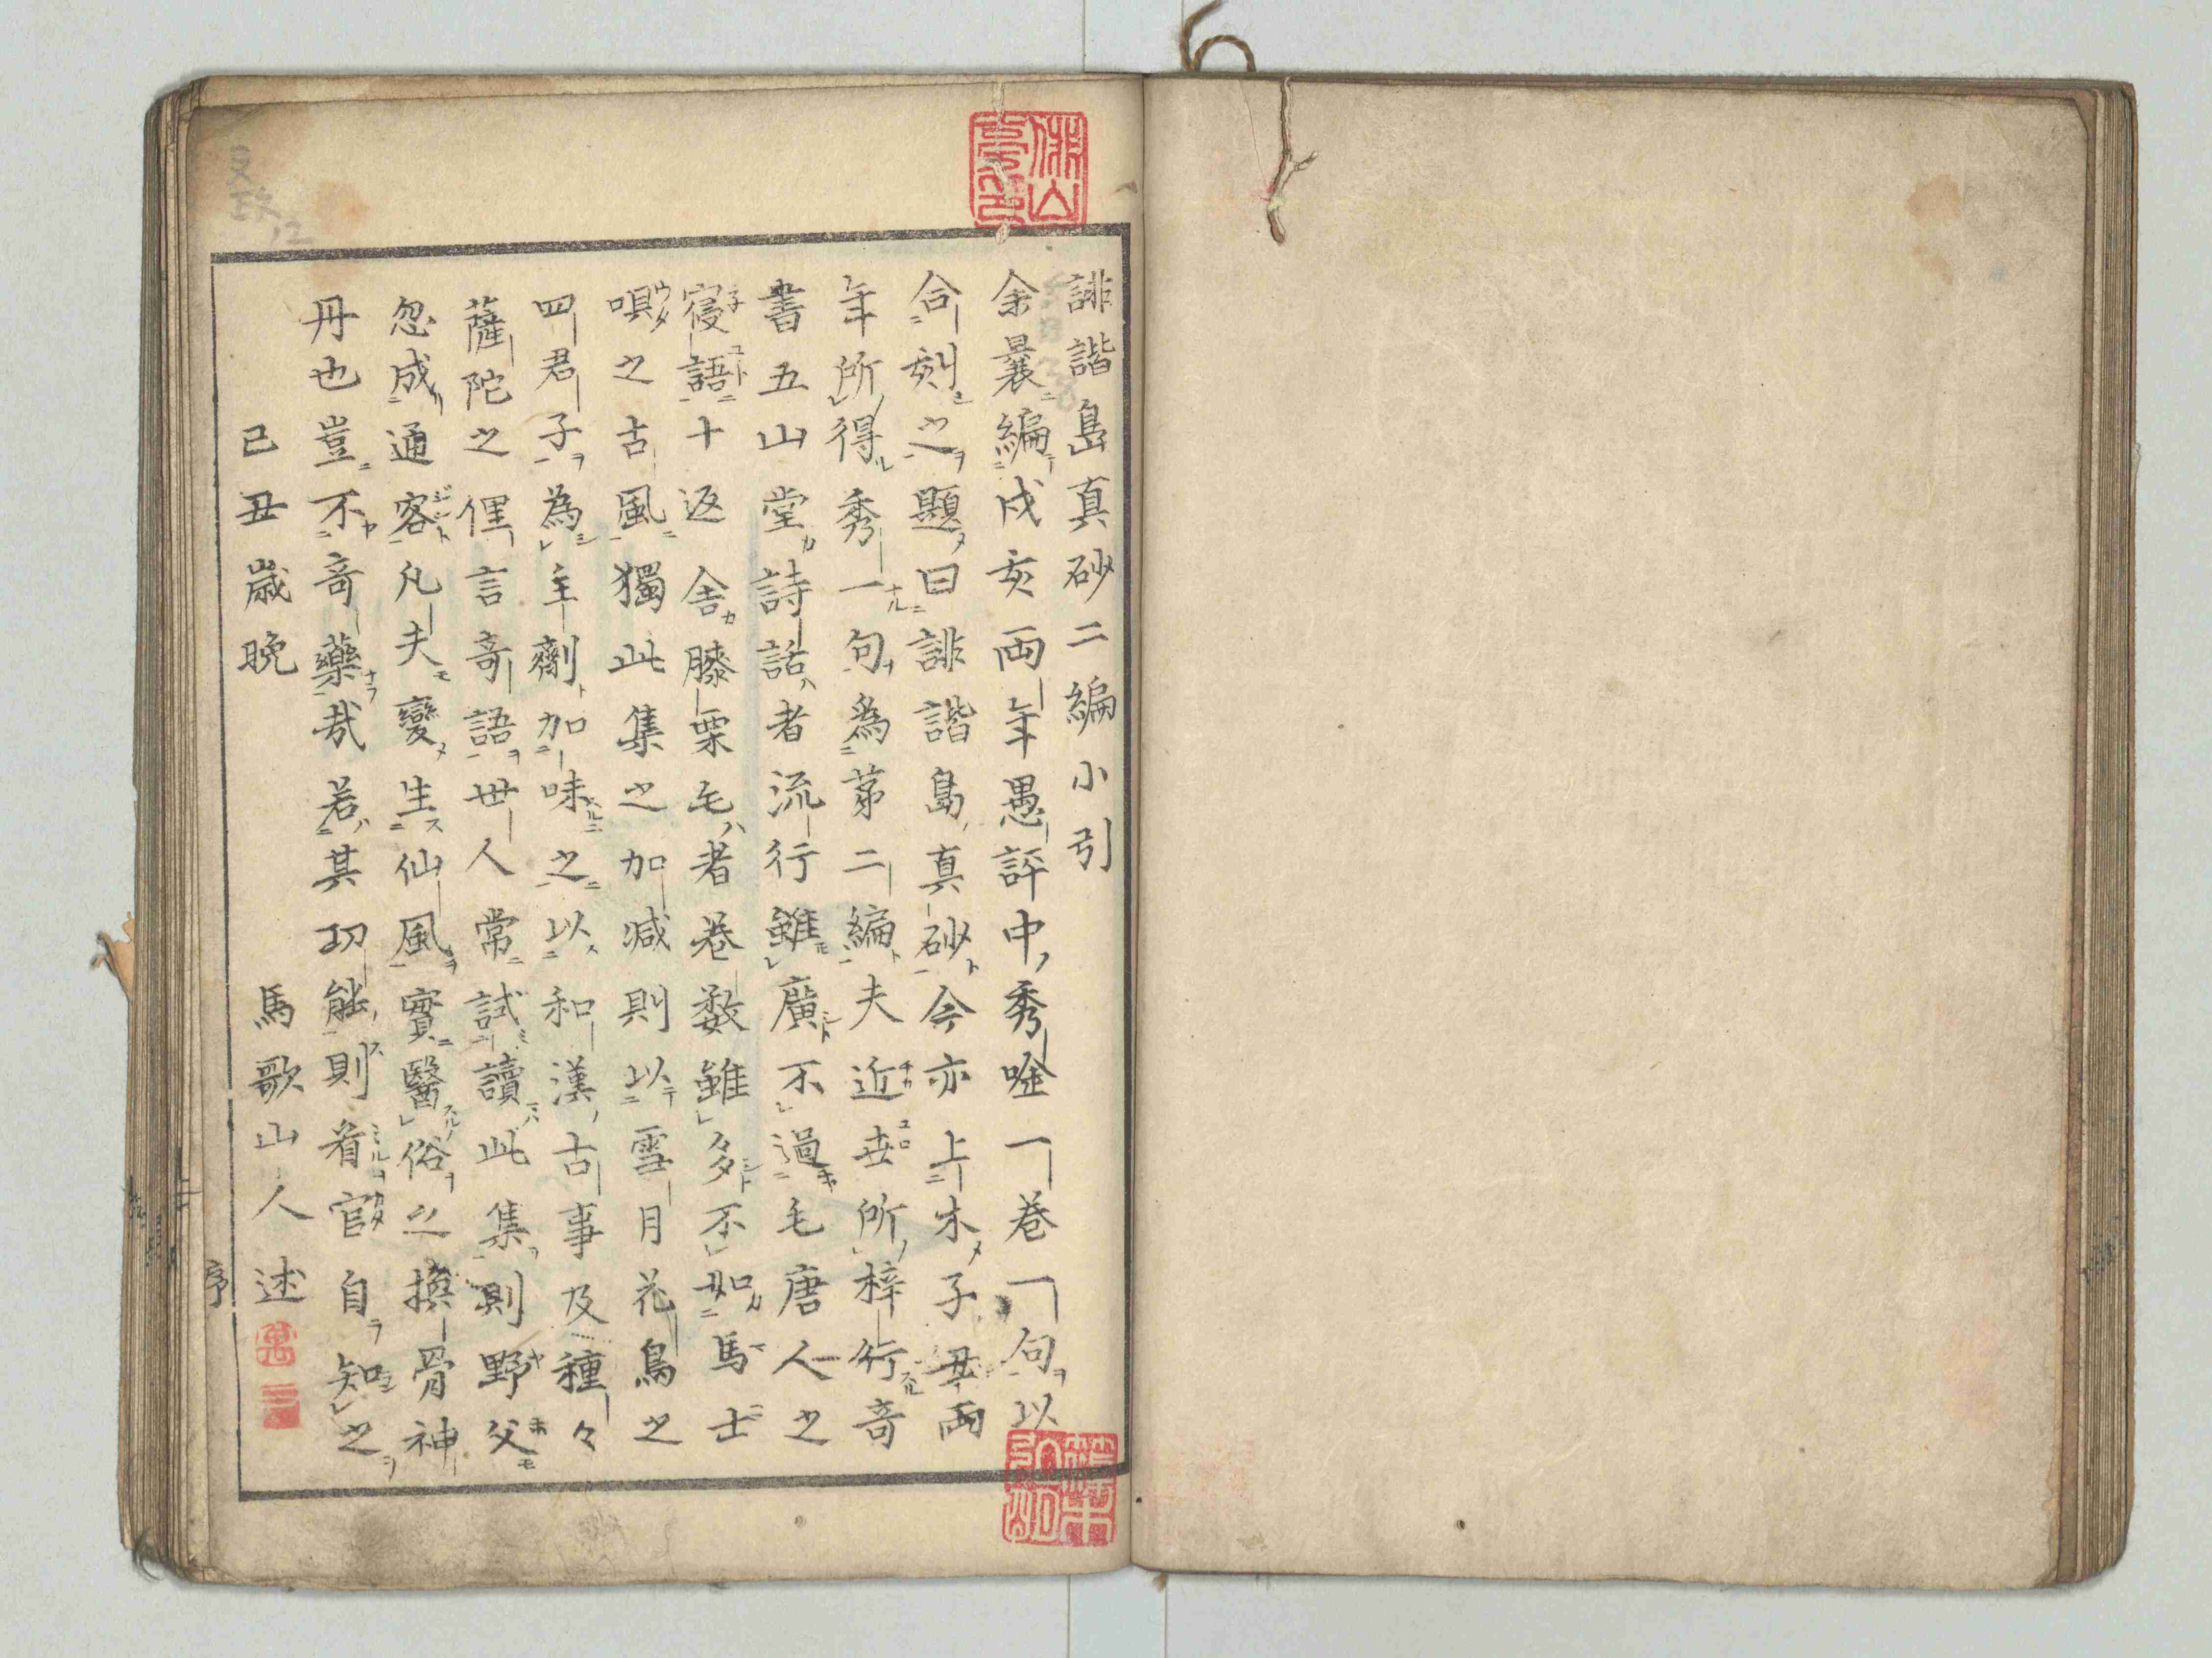 誹諧島真砂二編小引
余曩編戌亥両年愚評中秀唫一巻一句以
合刻之題曰誹諧島真砂今亦上木子丑両
年所得秀一句為苐二編夫近世所梓行竒
書五山堂詩話者流行雖廣不過毛唐人之
寝語十返舎膝栗毛者巻数雖多不如馬士
唄之古風獨此集之加减則以雪月花鳥之
四君子為主劑加味之以和漢古事及種々
薩陀之俚言竒語世人常試讀此集則野父
忽成通客凡夫變生仙風實醫俗之換骨神
丹也豈不竒藥哉若其功能則看官自知之
己丑歳晩
馬歌山人述
序
文政12